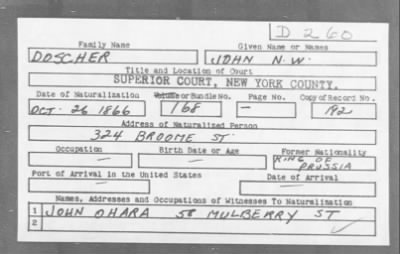 D 260
Family Name Given Name or Names
DOSCHER JOHN N.W.
Title and Location of Court
SUPERIOR COURT, NEW YORK COUNTY.
Date of Naturalization Volume or Bundle No. Page No. Copy of Record No.
OCT. 26 1866 168 — 192
Address of Naturalized Person
324 BROOME ST.
Occupation Birth Date or Age Former Nationality
— — KING OF PRUSSIA
Port of Arrival in the United States Date of Arrival
— —
Names, Addresses and Occupations of Witnesses To Naturalization
1 JOHN OHARA 58 MULBERRY ST
2